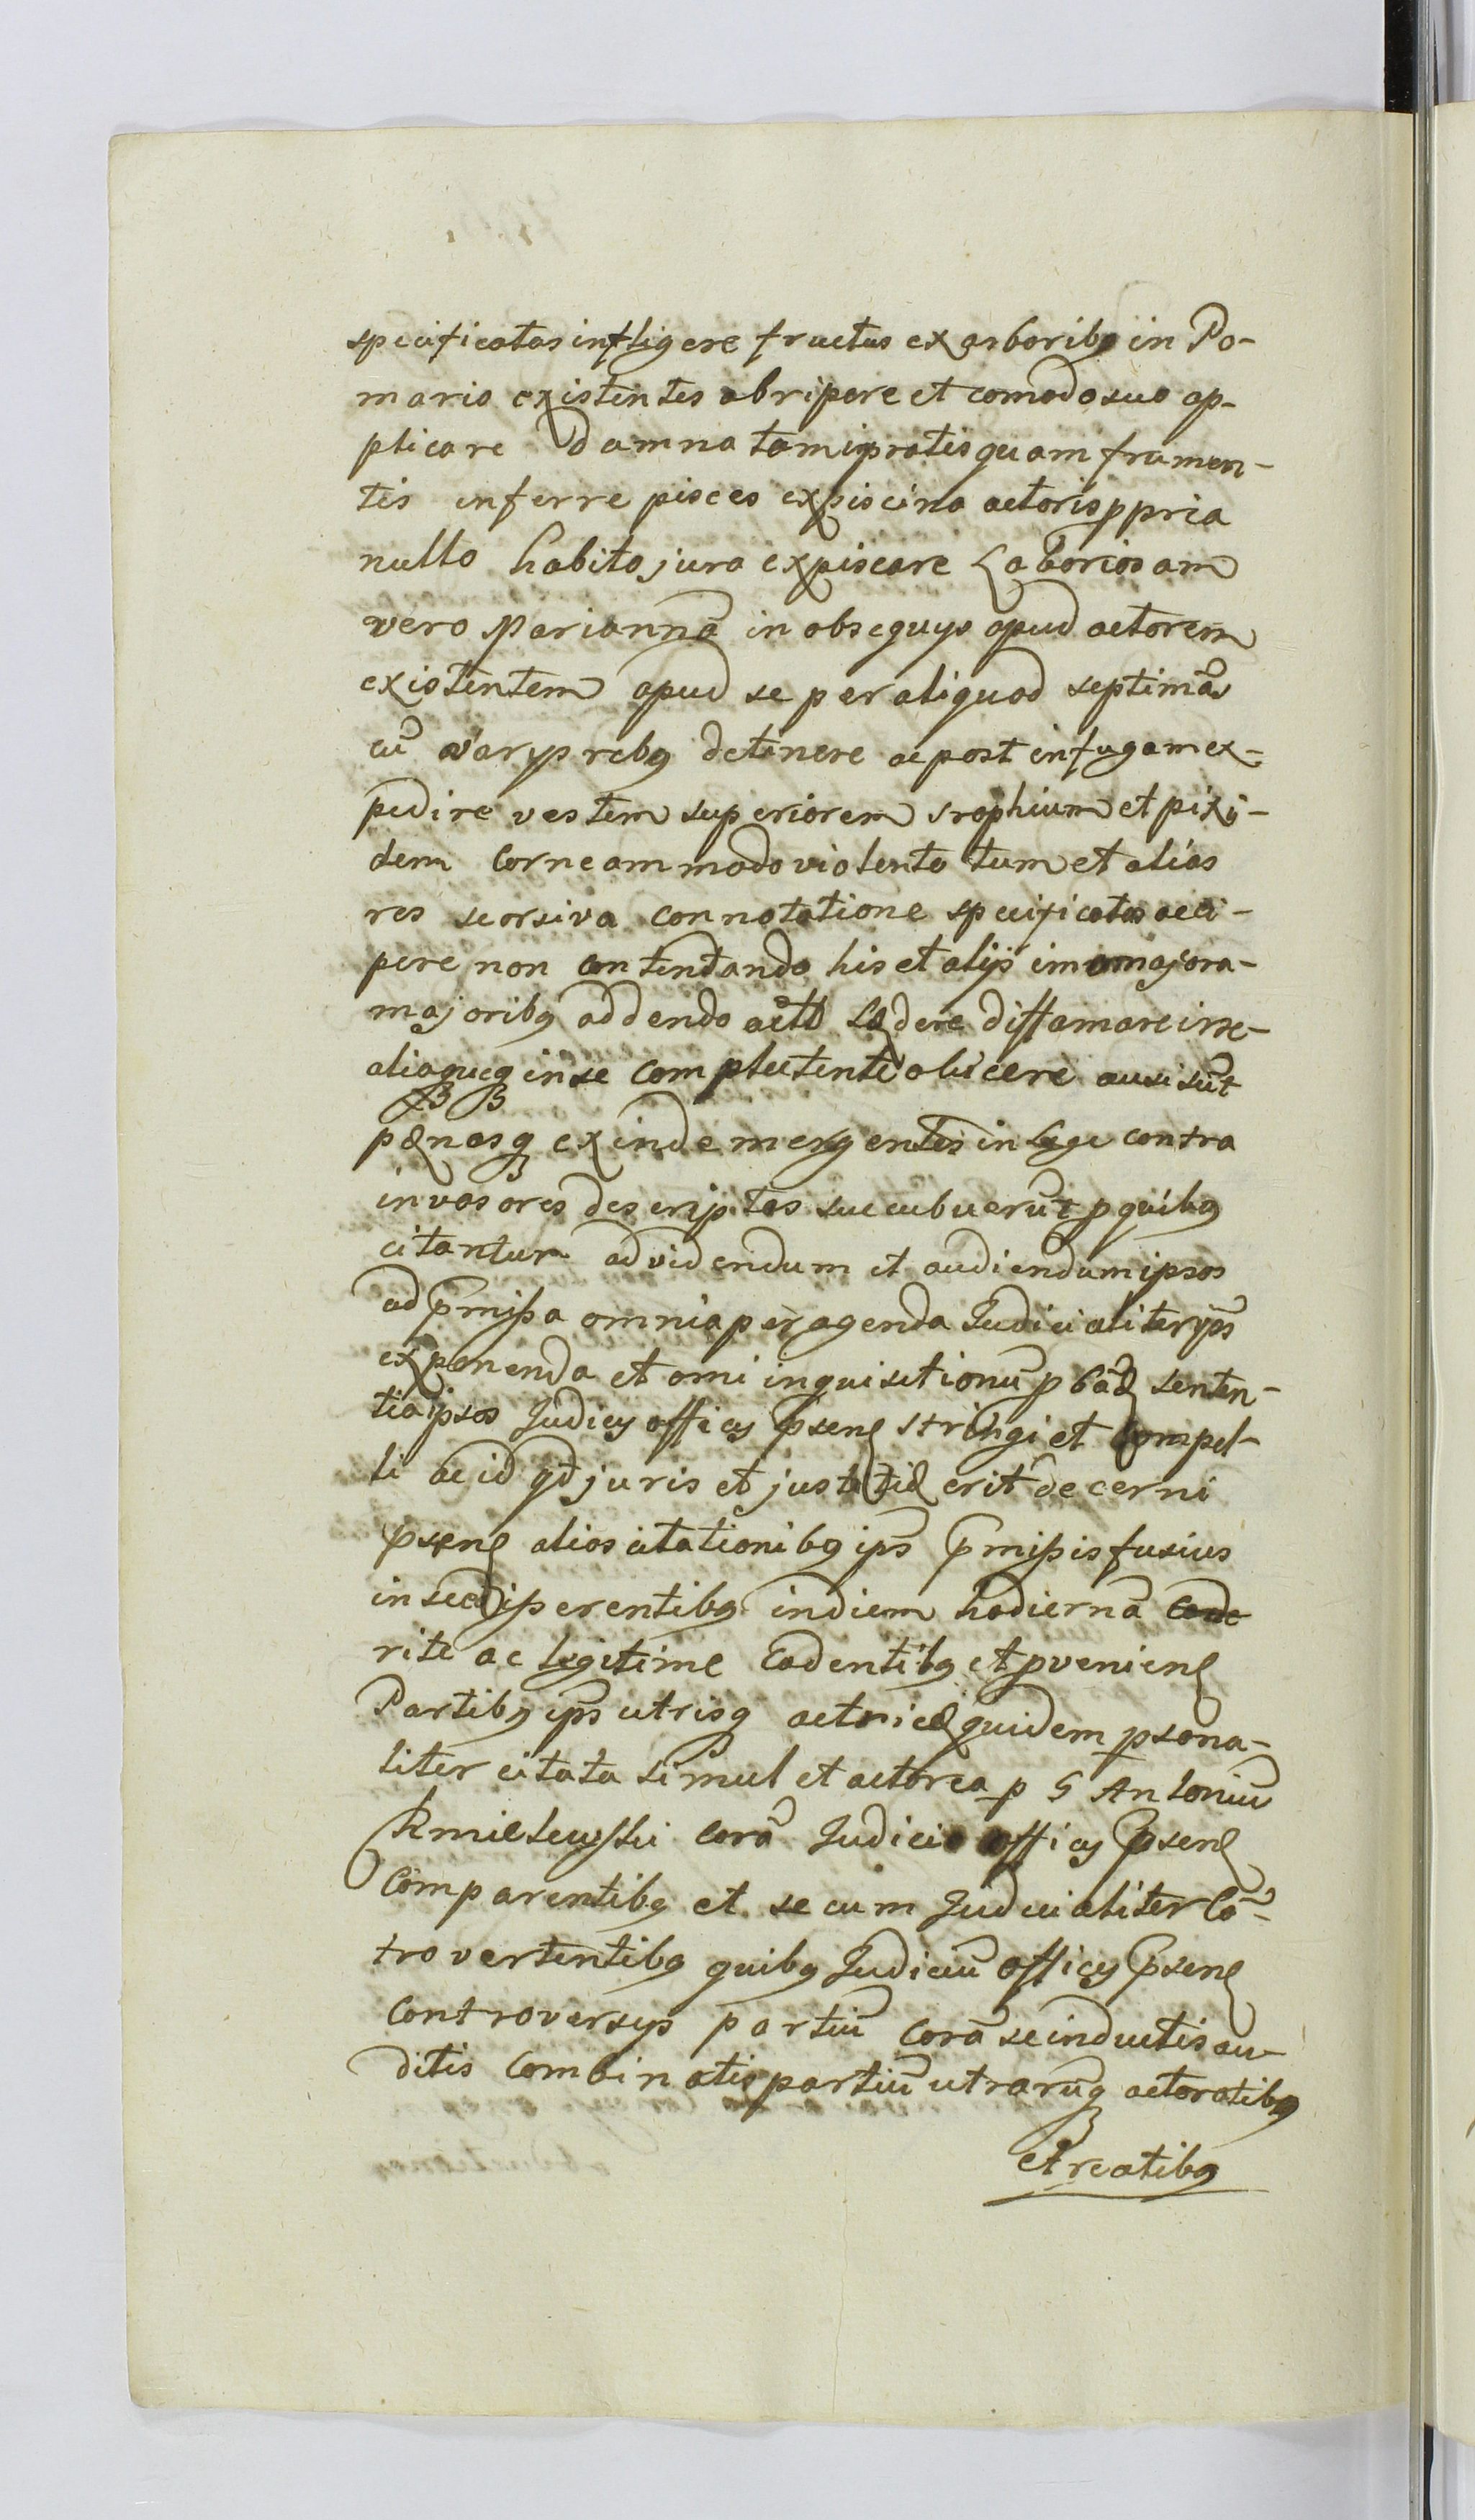 specificatas infligere fructus ex arboribq in Po-
mario existentes abripere et comodo suo ap-
plicare Damna tam i pratis quam frumen-
tis inferre pisces ex piscina actoris ppria
nullo habito jura expiscare Laboriosam
vero Mariannā in obsequys apud actorem
existentem apud se per aliquod septimās
cū varys rebq detinere ac post in fugam ex-
pedire vestem superiorem srophium et pixi-
dem Corneam modo violento tum et alias
res seorsiva connotatione specificatas acci-
pere non contentando his et alijs imo majora
majoribq addendo lædere diffamare irre-
aliaqueq in se complectente obiicere ausi sūt
pænasq exinde mergentes in lege contra
invasores descriptas succubuerūt p quibq
citantur ad videndum et audiendum ipsos
ad p̄missa omnia peragenda Judicialiter ips̄
exponenda et omi inquisitionū p bāe senten-
tia ipsos Judicy officy p̄sen stringi et Compel-
li ac id qd juris et justitiæ erit decerni
p̄sen alios citationibq ips̄ p̄missis fusius
in se disserentibq in diem hodiernā
rite ac legitime Cadentibq et pvenien
Partibq ips̄ utrisq actorica quidem psona-
liter citata simul et actorea p G Antoniū
Kmielewski Corā Judicio officy p̄sen
Comparentibq et secum Judicialiter Cō-
trovertentibq quibq Judiciū officy p̄sen
Controversys partiū Corā se inductis au-
ditis Combinatis partiū utrarūq actoratibq
et reatibq